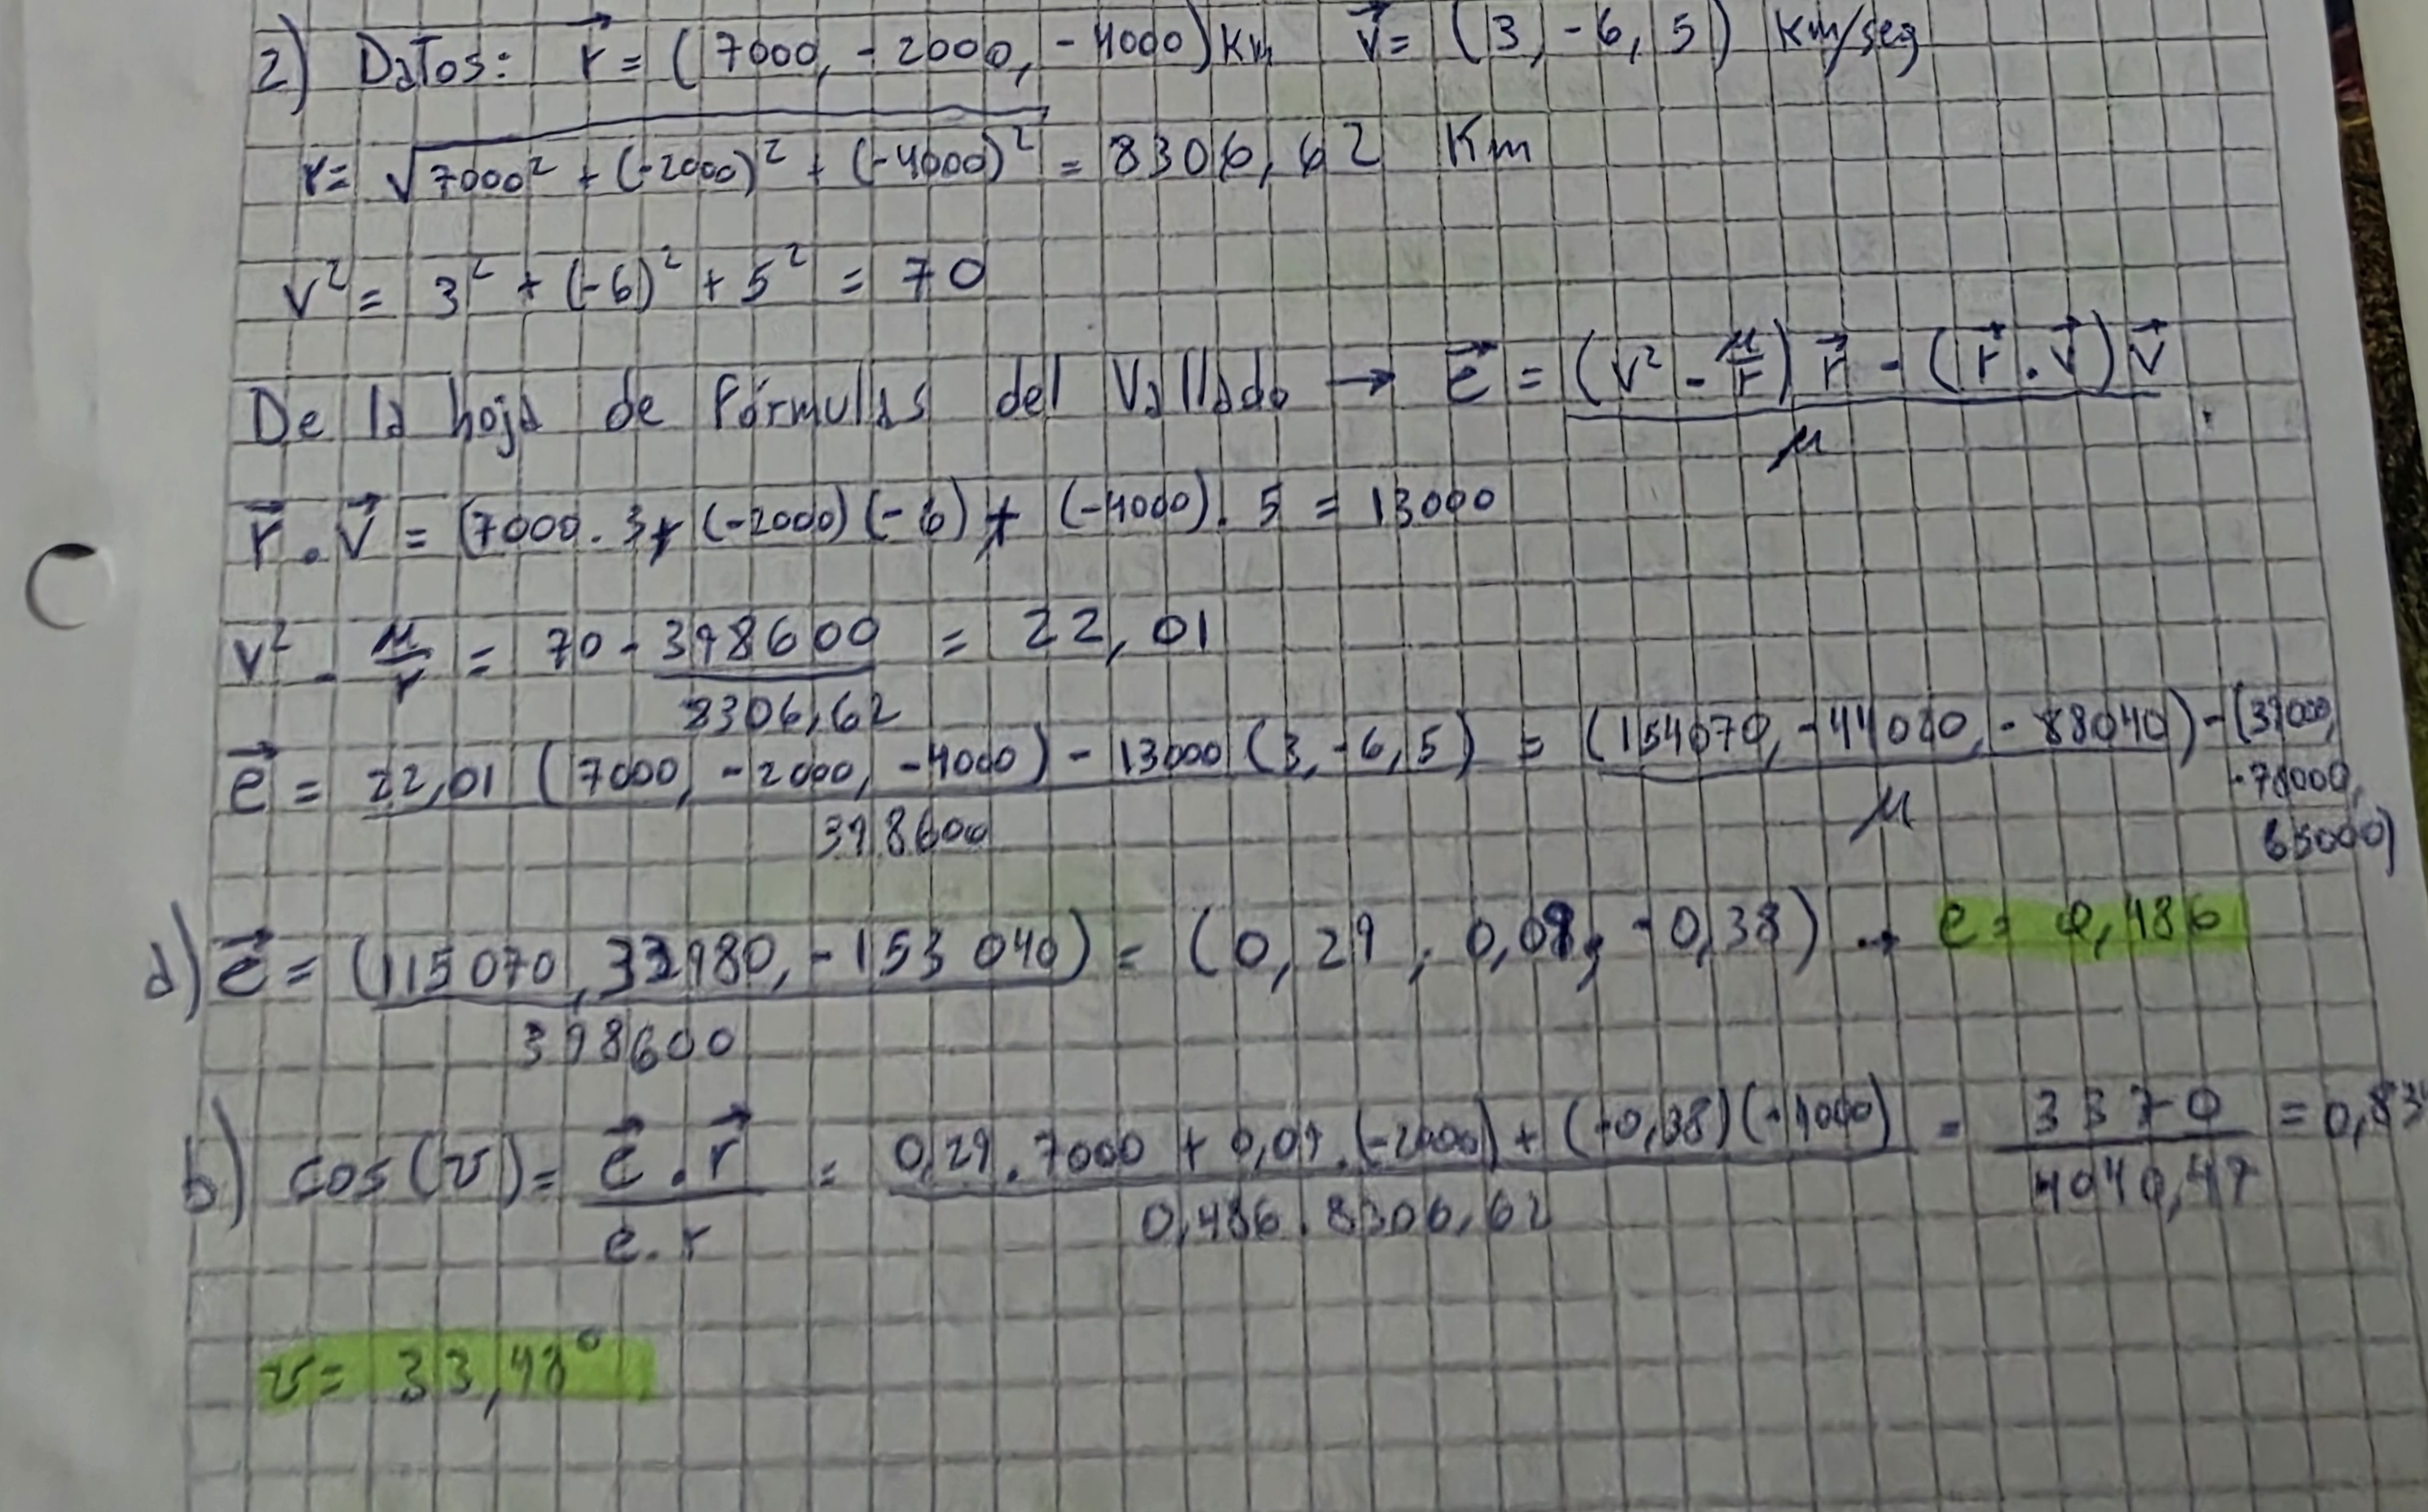 2) Datos: r⃗ = (7000, -2000, -4000) Km v⃗ = (3, -6, 5) Km/seg
r = √(7000² + (-2000)² + (-4000)²) = 8306,62 Km
v² = 3² + (-6)² + 5² = 70
De la hoja de Fórmulas del Vallado → e⃗ = ((v² - μ/r) r⃗ - (r⃗ . v⃗) v⃗) / μ
r⃗ . v⃗ = (7000 . 3 + (-2000)(-6) + (-4000). 5 = 13000
v² - μ/r = 70 - 398600/8306,62 = 22,01
e⃗ = (22,01 (7000, -2000, -4000) - 13000 (3, -6, 5)) / 398600 = ((154070, -44020, -88040) - (39000, -78000, 65000)) / μ
a) e⃗ = (115070, 33980, -153040) / 398600 = (0,29 , 0,09, -0,38) → e = 0,486
b) cos(v) = (e⃗ . r⃗) / (e . r) = (0,29 . 7000 + 0,09 . (-2000) + (-0,38)(-4000)) / (0,486 . 8306,62) = 3370 / 4040,47 = 0,834
v = 33,48°